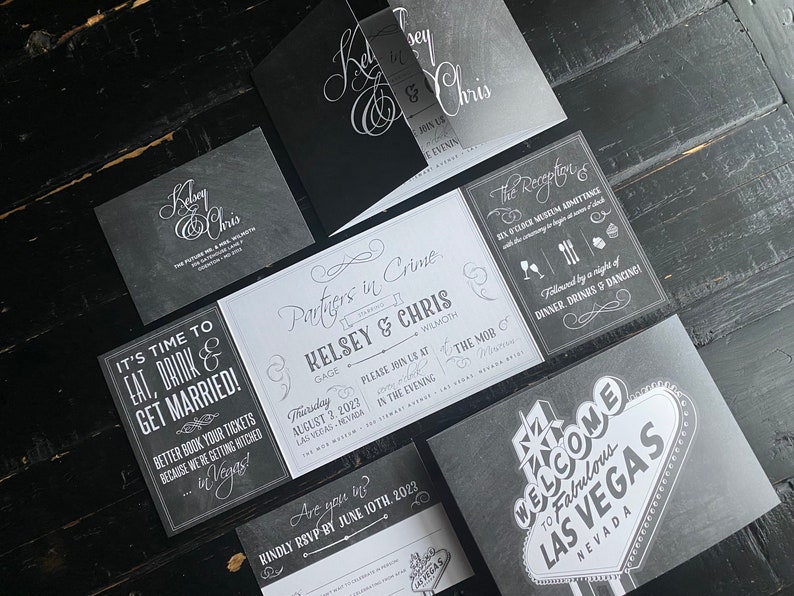 Kelsey
& Chris
in
&
PLEASE JOIN US
IN THE EVENING
Kelsey
& Chris
THE FUTURE MR. & MRS. WILMOTH
506 GATEHOUSE LANE F
ODENTON • MD 21113
IT'S TIME TO
EAT, DRINK &
GET MARRIED!
BETTER BOOK YOUR TICKETS
BECAUSE WE'RE GETTING HITCHED
... in Vegas!
Partners in Crime
STARRING
KELSEY & CHRIS
GAGE
WILMOTH
Thursday
AUGUST 3, 2023
LAS VEGAS • NEVADA
PLEASE JOIN US AT
seven o'clock
IN THE EVENING
at THE MOB
Museum
THE MOB MUSEUM • 300 STEWART AVENUE • LAS VEGAS, NEVADA 89101
The Reception
SIX O'CLOCK MUSEUM ADMITTANCE
with the ceremony to begin at seven o'clock
Followed by a night of
DINNER, DRINKS & DANCING!
Are you in?
KINDLY RSVP BY JUNE 10TH, 2023
WAIT TO CELEBRATE IN PERSON!
CELEBRATING FROM AFAR
WELCOME
TO Fabulous
LAS VEGAS
NEVADA
WELCOME
TO Fabulous
LAS VEGAS
NEVADA